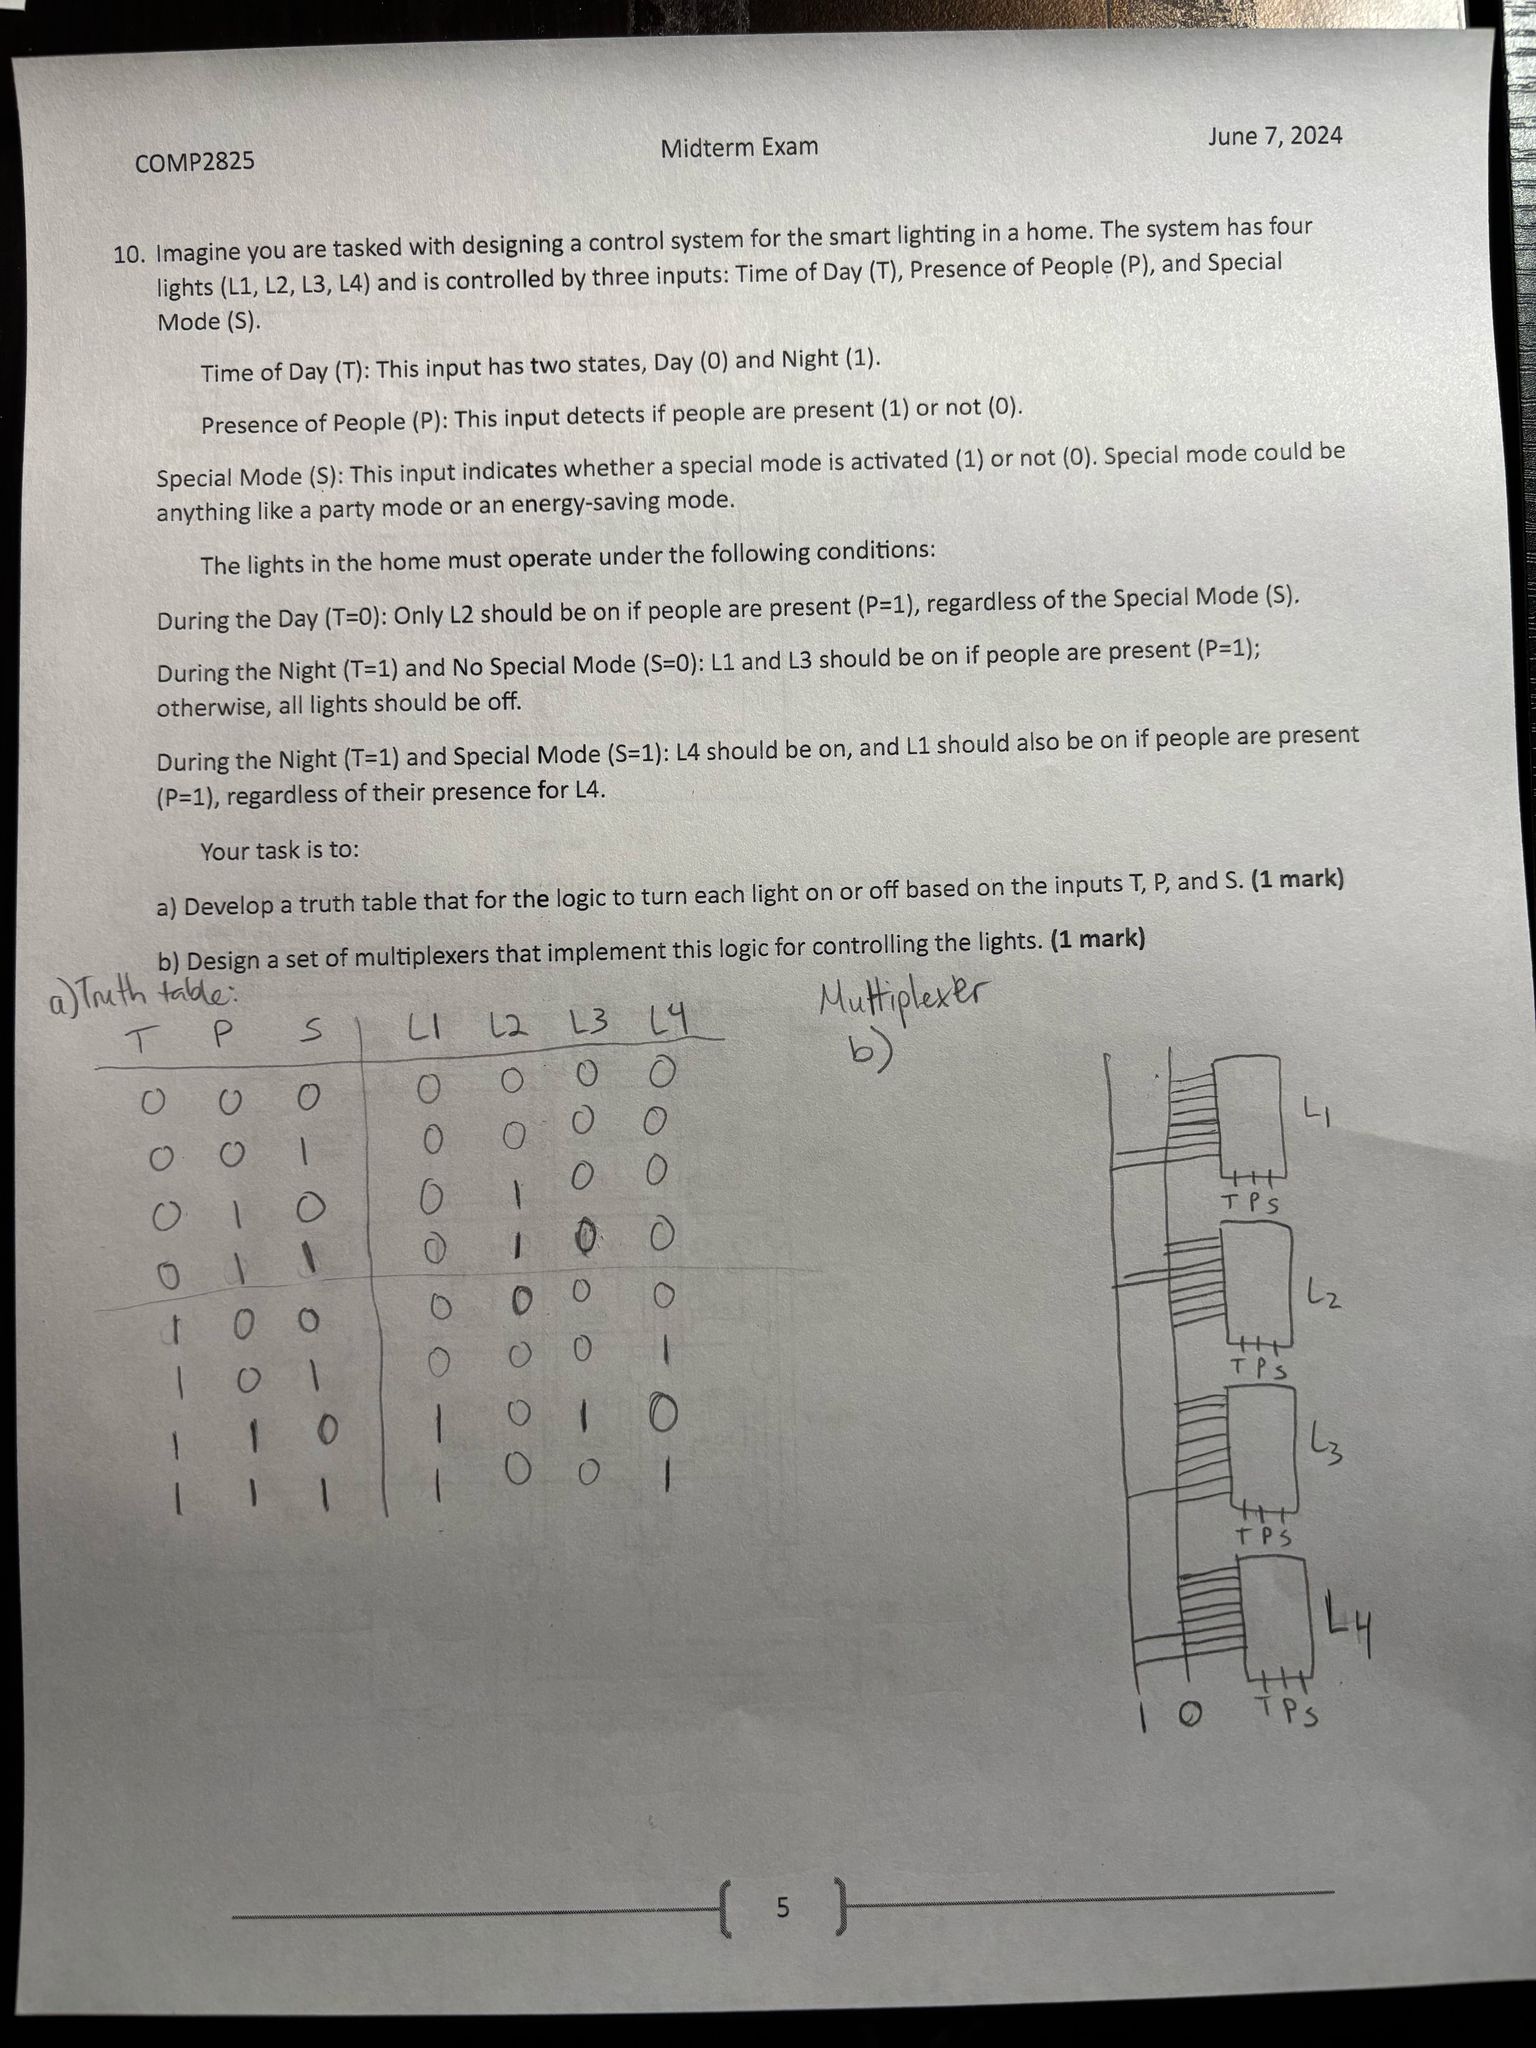 COMP2825 Midterm Exam June 7, 2024
10. Imagine you are tasked with designing a control system for the smart lighting in a home. The system has four
lights (L1, L2, L3, L4) and is controlled by three inputs: Time of Day (T), Presence of People (P), and Special
Mode (S).
Time of Day (T): This input has two states, Day (0) and Night (1).
Presence of People (P): This input detects if people are present (1) or not (0).
Special Mode (S): This input indicates whether a special mode is activated (1) or not (0). Special mode could be
anything like a party mode or an energy-saving mode.
The lights in the home must operate under the following conditions:
During the Day (T=0): Only L2 should be on if people are present (P=1), regardless of the Special Mode (S).
During the Night (T=1) and No Special Mode (S=0): L1 and L3 should be on if people are present (P=1);
otherwise, all lights should be off.
During the Night (T=1) and Special Mode (S=1): L4 should be on, and L1 should also be on if people are present
(P=1), regardless of their presence for L4.
Your task is to:
a) Develop a truth table that for the logic to turn each light on or off based on the inputs T, P, and S. (1 mark)
b) Design a set of multiplexers that implement this logic for controlling the lights. (1 mark)
a) Truth table:
T P S L1 L2 L3 L4
0 0 0 0 0 0 0
0 0 1 0 0 0 0
0 1 0 0 1 0 0
0 1 1 0 1 0 0
1 0 0 0 0 0 0
1 0 1 0 0 0 1
1 1 0 1 0 1 0
1 1 1 1 0 0 1
Multiplexer
b)
L1
T P S
L2
T P S
L3
T P S
L4
T P S
1 0
5